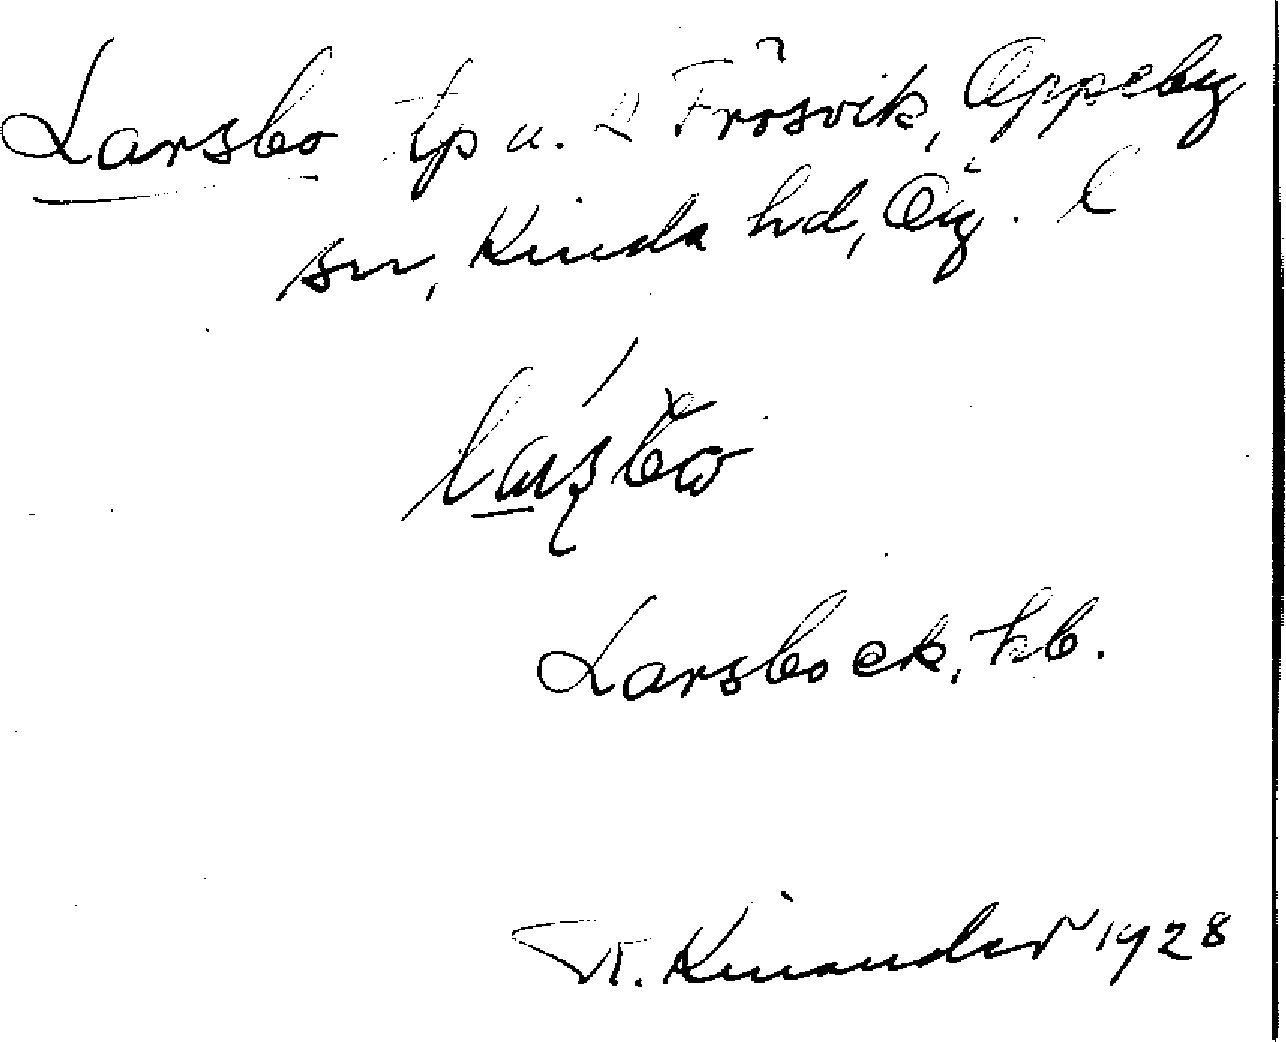 Larsbo tp u. Frösvik, Oppeby
sn, Kinda hd, Ög. C
Larsbo ek. kb.
Kinander 1928